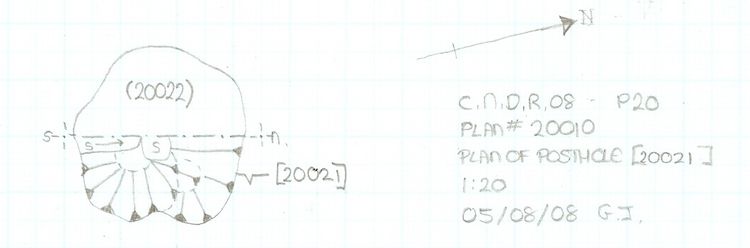 N
(20022)
S
n.
S
S
[20021]
C.N.D.R.08 - P20
PLAN# 20010
PLAN OF POSTHOLE [20021]
1:20
05/08/08 G.J.